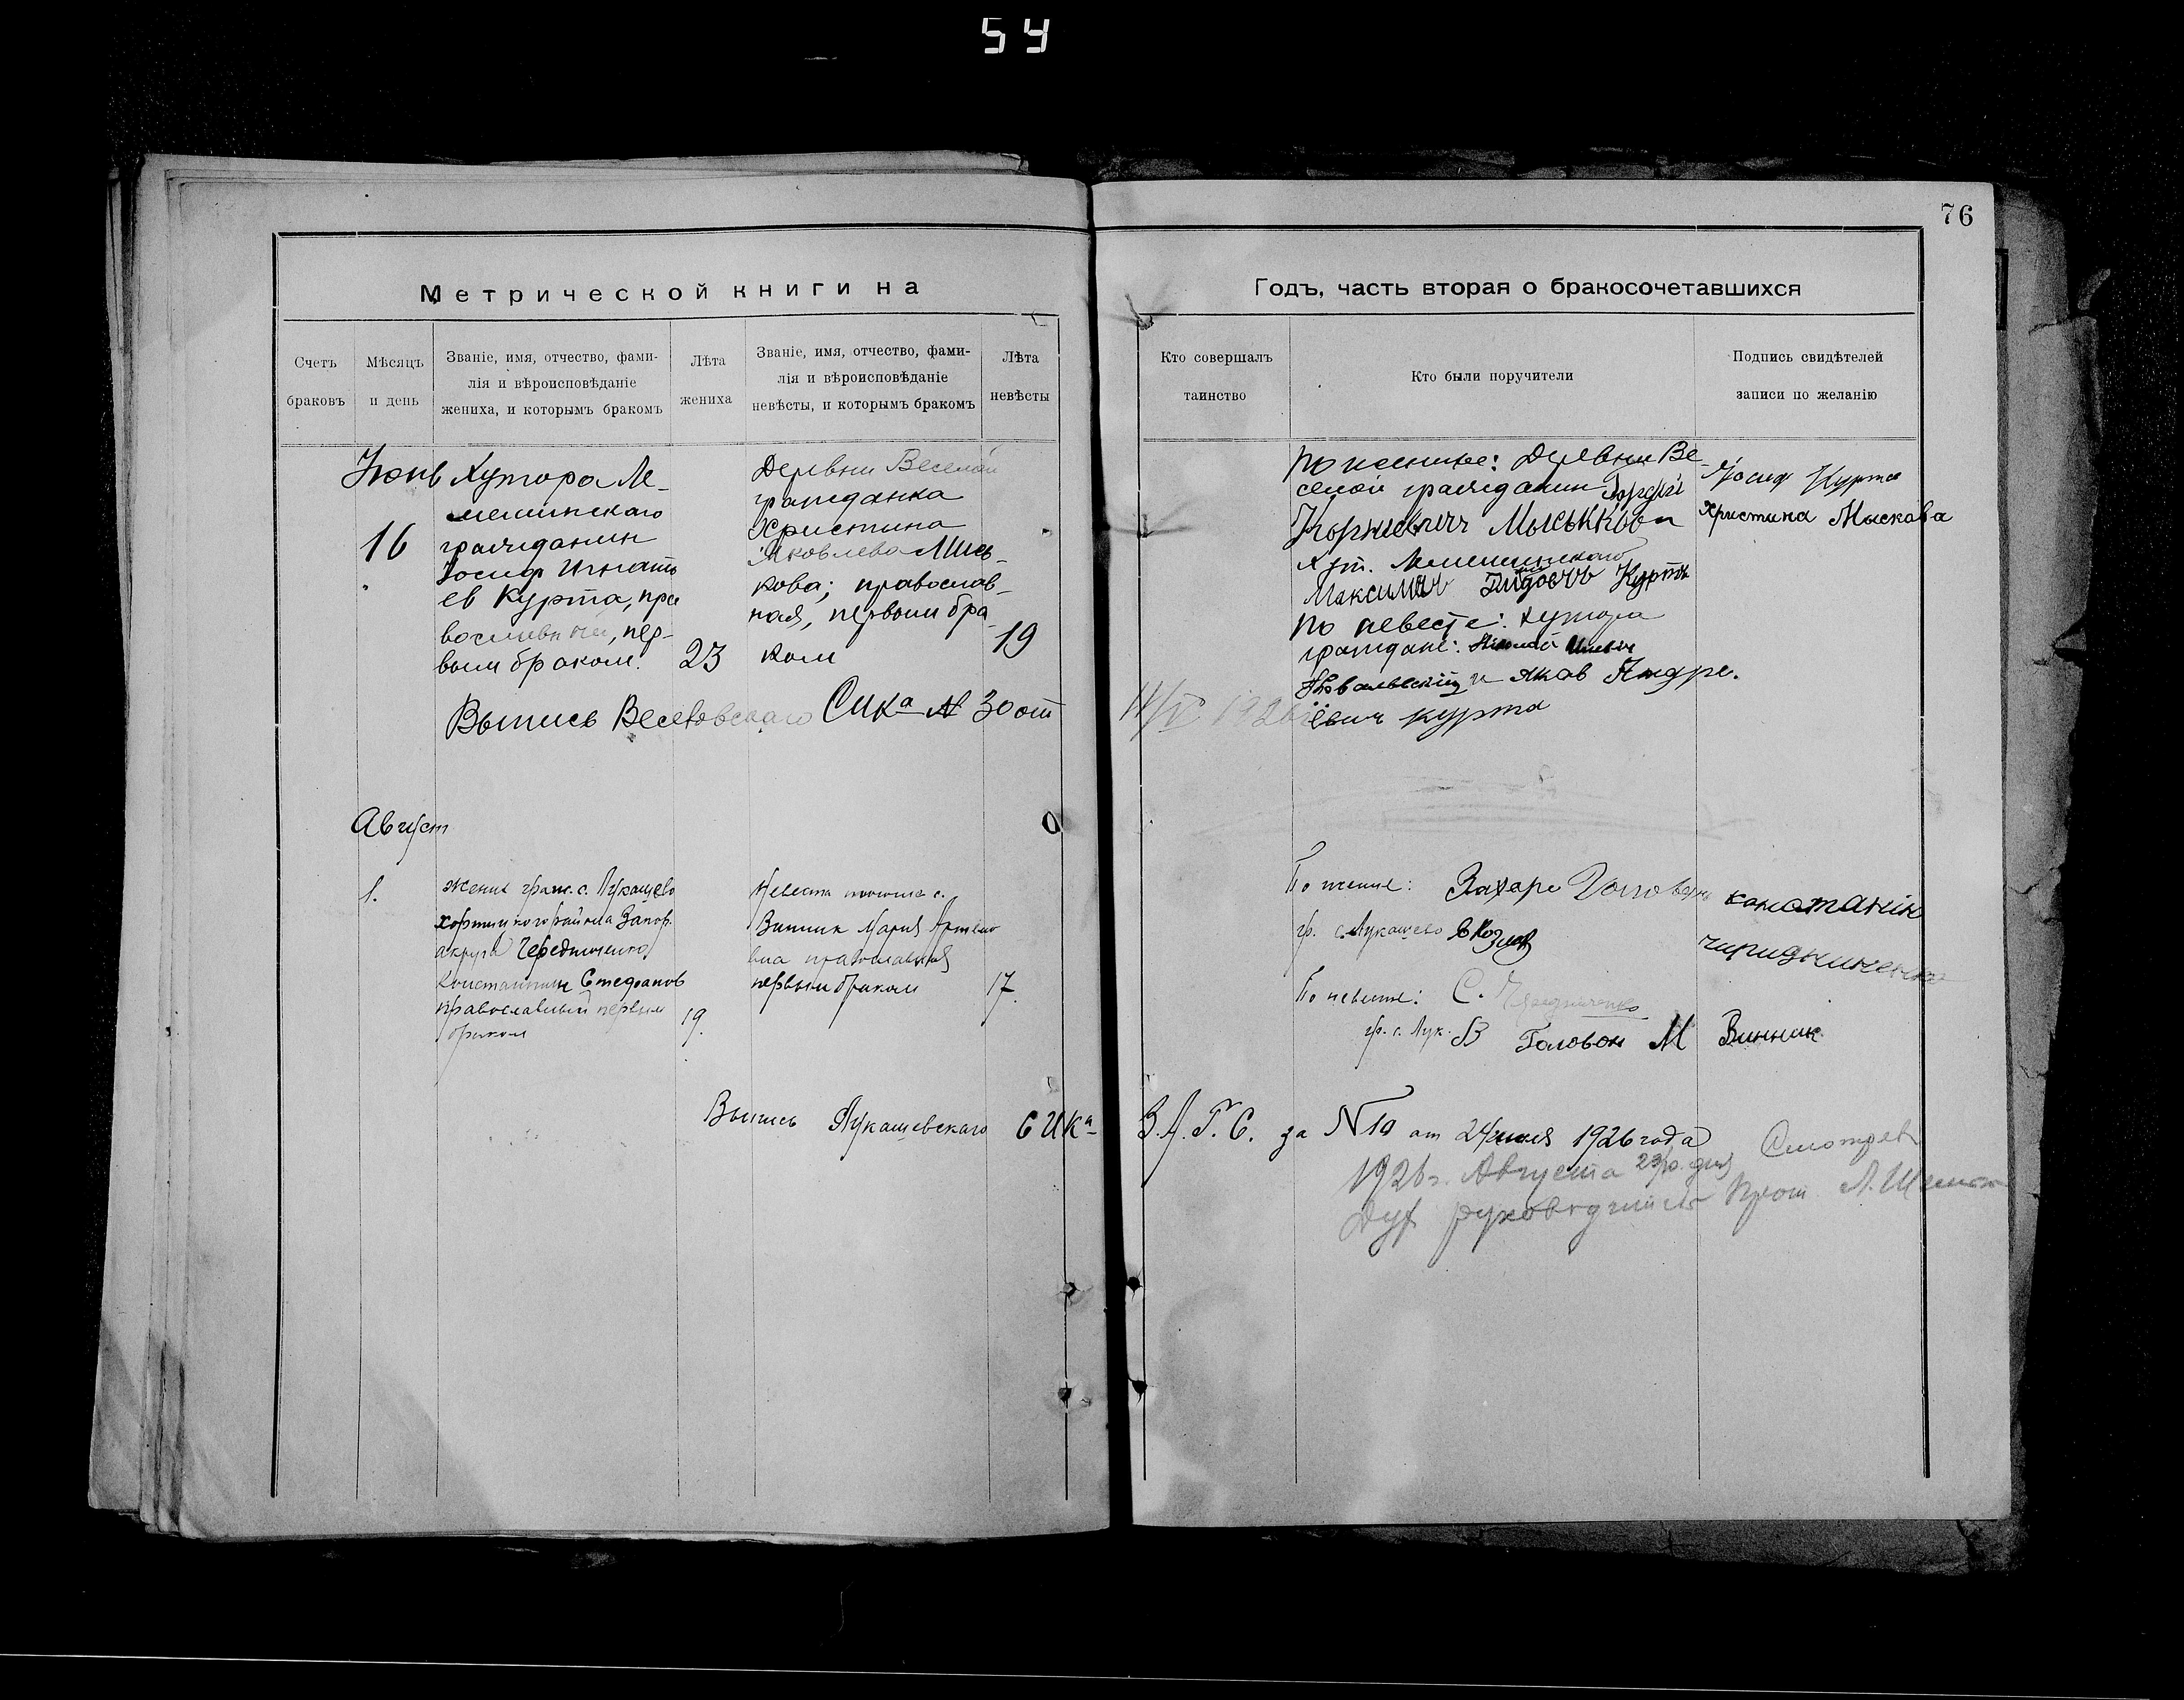 54
76
Метрической книги на
Годъ, часть вторая о бракосочетавшихся
Счетъ
браковъ
Мѣсяцъ
и день
Званіе, имя, отчество, фами-
лія и вѣроисповѣданіе
жениха, и которымъ бракомъ
Лѣта
жениха
Званіе, имя, отчество, фами-
лія и вѣроисповѣданіе
невѣсты, и которымъ бракомъ
Лѣта
невѣсты
Кто совершалъ
таинство
Кто были поручители
Подпись свидѣтелей
записи по желанію
Июнь
16
Хутора Ле-
мешинскаго
гражданин
Иосиф Игнать
ев Курта, пра
вославный, пер-
вым браком.
23
Деревни Веселой
гражданка
Христина
Яковлева Мись-
кова; православ-
ная, первым бра-
ком
19
По жениже: Деревни Ве-
селой гражданин Гордей
Корнеевич Мыськов
Хут. Лемешинскаго
Максим Курта
По невесте: хутора
граждане:
и Яков Андре-
евич Курта
Иосиф Курта
Христина Мыскова
Выпись Веселовскаго СИКа № 30 от
1926
Август
1.
Жених граж. с. Лукашево
Хортицкого района Запор.
округа Чередниченко
Константин Стефанов
православный первым
браком
19.
Невеста тогоже с.
Винник Мария Артемо
вна православная
первым браком
17.
По жениже: Захаре
гр. с. Лукашево Я Козлов
По невесте: С. Чередниченко
гр. с. Лук. В Головон
констанін
чиридниченко
М Винник
Выпись Лукашевскаго СИКа
З.А.Г.С. за №10 от 24 июля 1926 года
Смотрел
1926 г. Августа 23го дня
Дух руководитель Прот. Л.